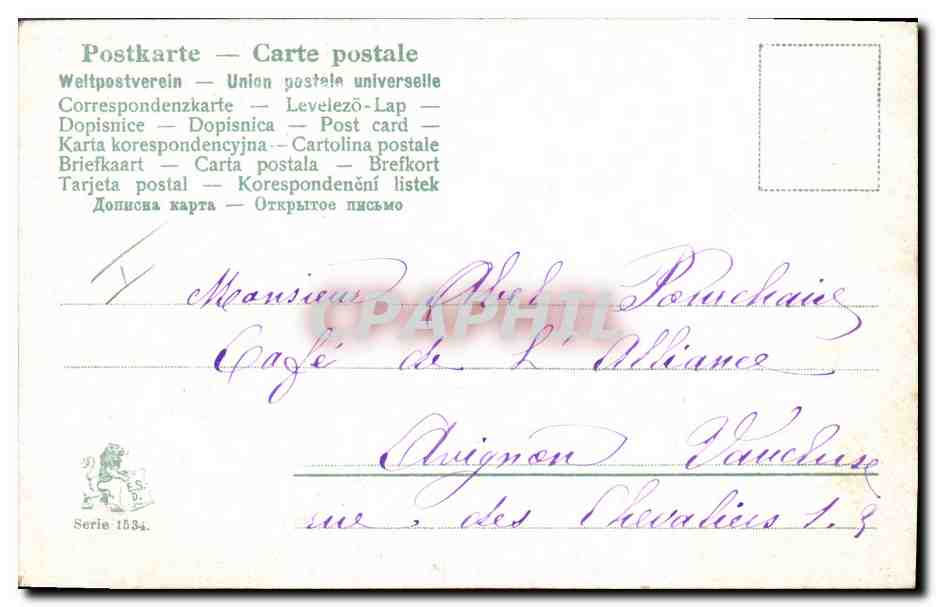 Postkarte — Carte postale
Weltpostverein — Union postale universelle
Correspondenzkarte — Levelezö-Lap —
Dopisnice — Dopisnica — Post card —
Karta korespondencyjna — Cartolina postale
Briefkaart — Carta postala — Brefkort
Tarjeta postal — Korespondenční listek
Дописна карта — Открытое письмо
Monsieur Abel Pourchaire
CPAPHIL
Café de L'Alliance
Avignon Vaucluse
rue des Chevaliers 1.
Serie 1534.